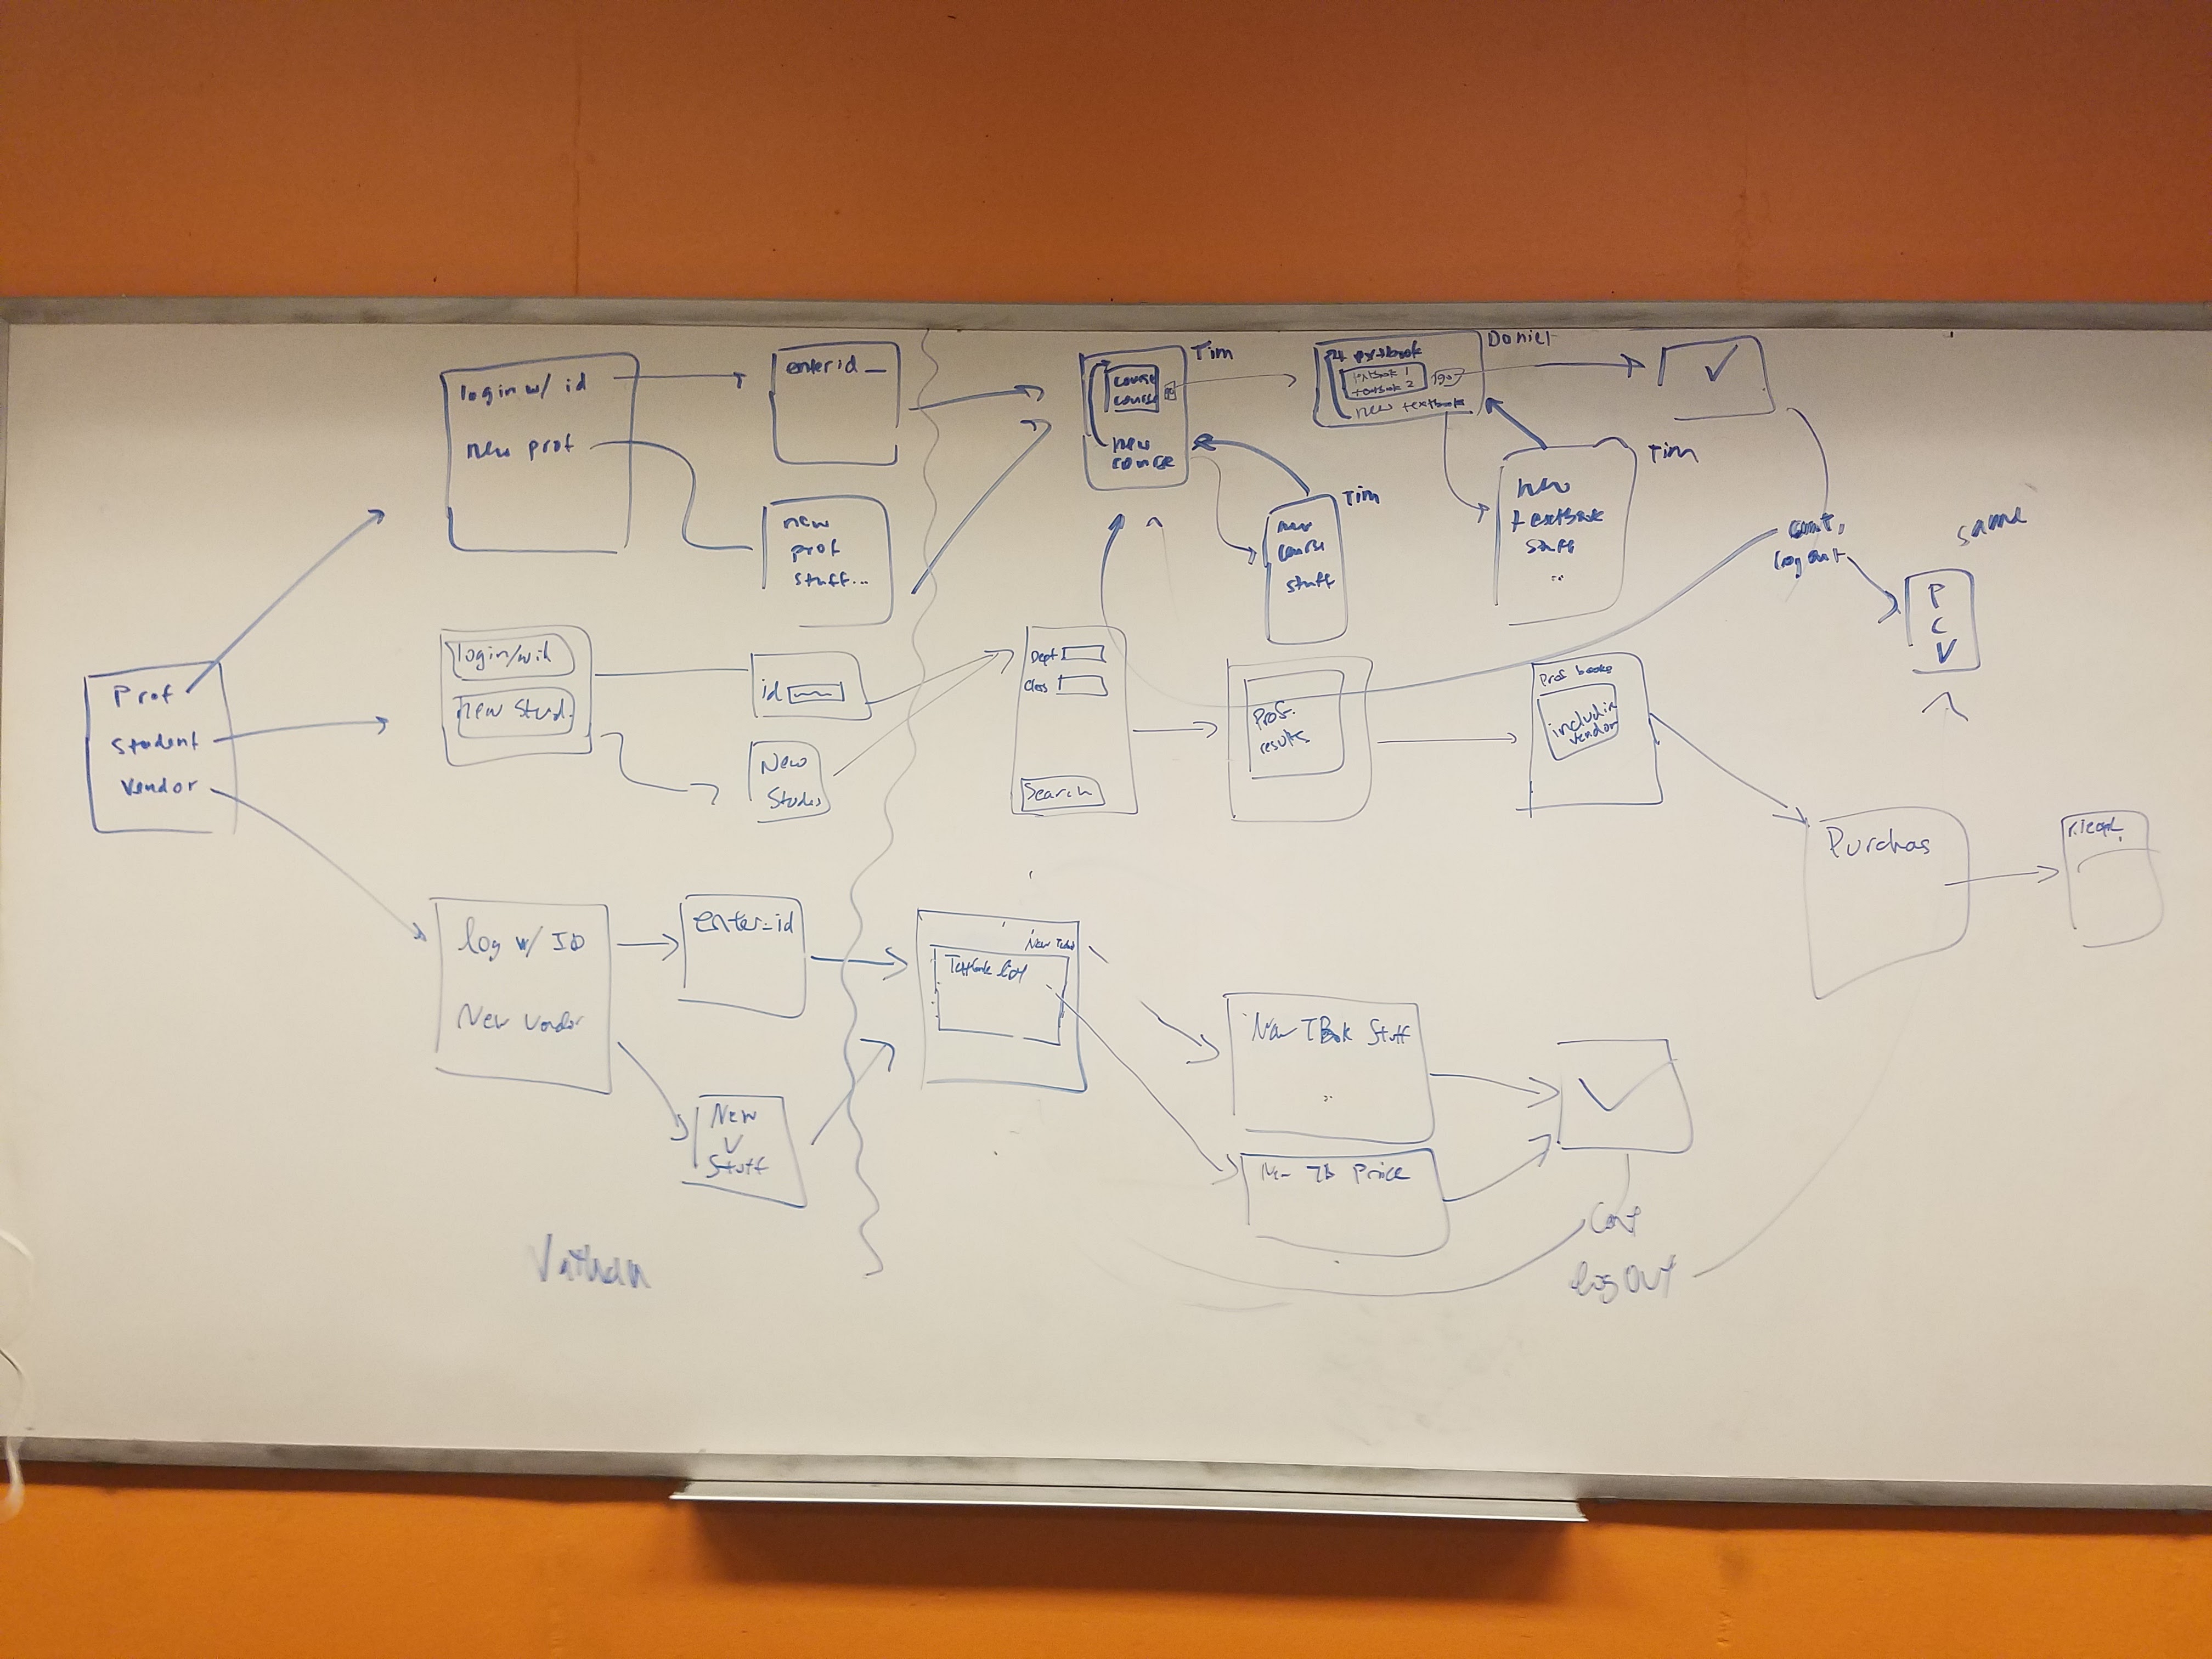 Prof
student
vendor
login w/ id
new prof
enter id _
new
prof
stuff...
Tim
course
course
new
course
Tim
new
course
stuff
Daniel
textbook 1
textbook 2
new textbook
✓
Tim
new
textbook
stuff
..
cont,
logout
same
P
C
V
new stud.
id
New
Dept
Class
Search
Prof.
results
Prof books
includin
vendor
Purchas
log w/ ID
New vendor
enter-id
New
V
stuff
Textbook list
New TBook Stuff
..
TB Price
✓
Cont
log OUT